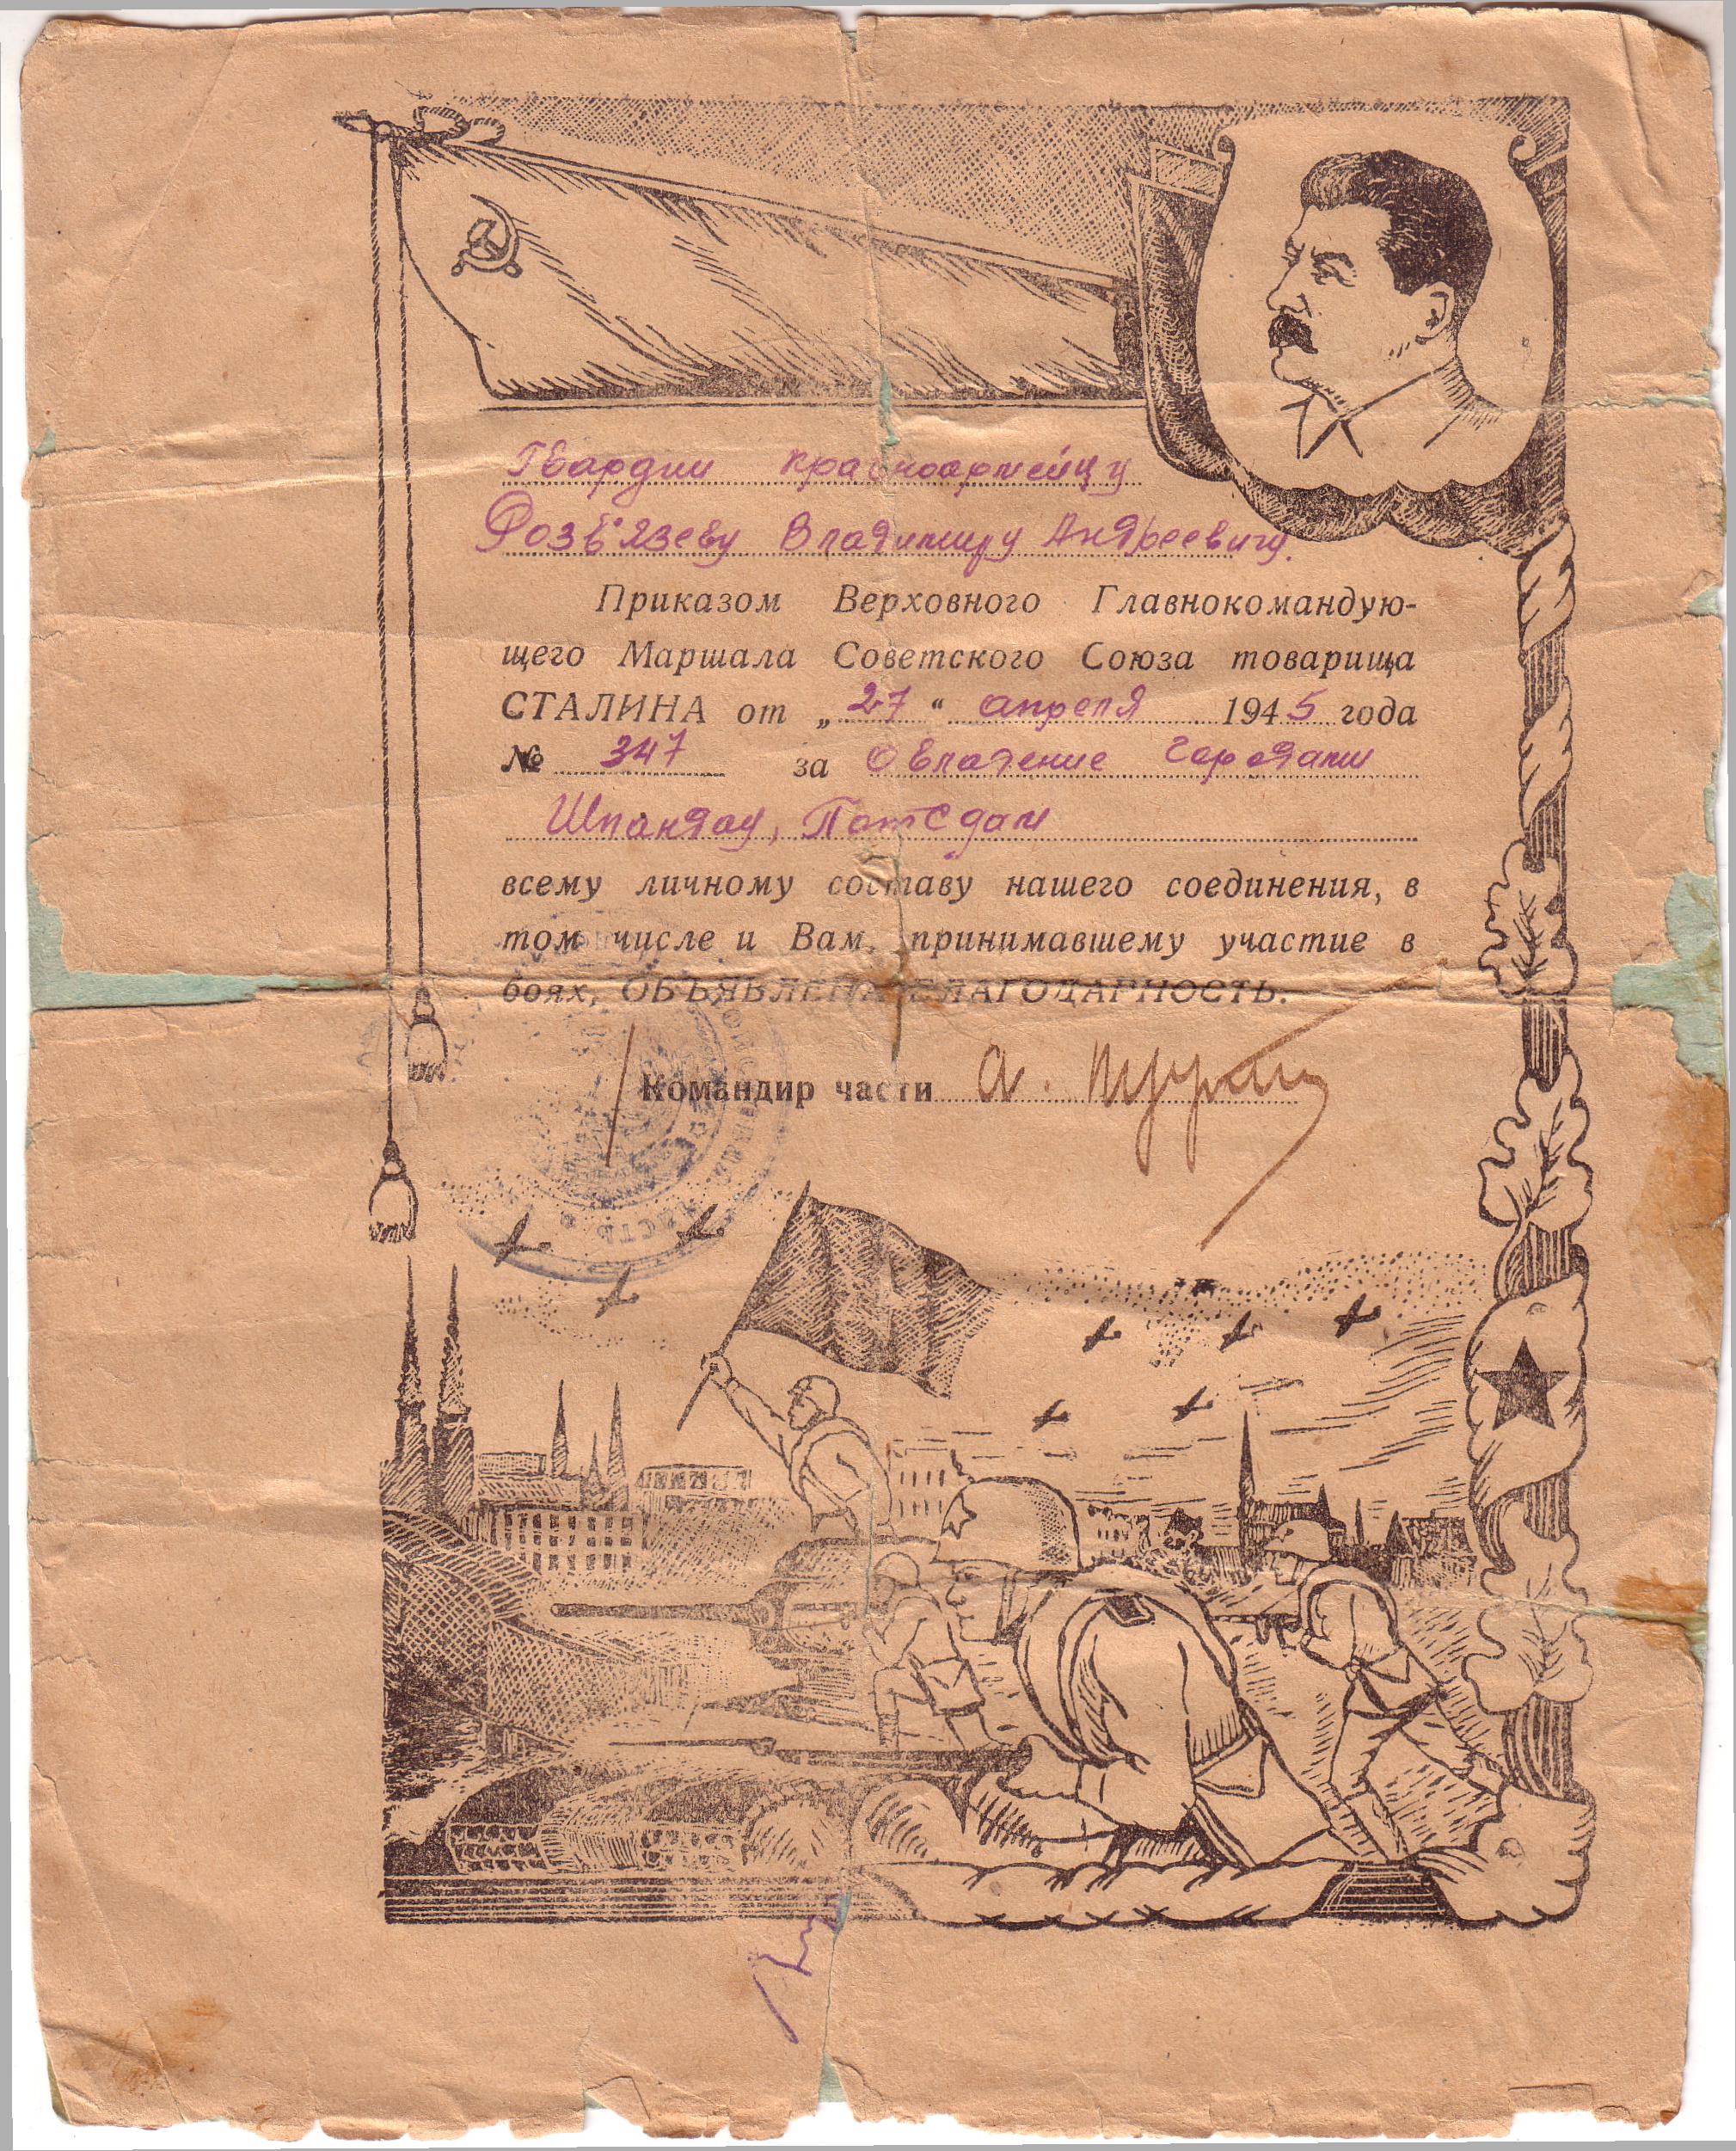 Гвардии красноармейцу
Розъязеву Владимиру Андреевичу.
Приказом Верховного Главнокомандую-
щего Маршала Советского Союза товарища
СТАЛИНА от „27“ апреля 1945 года
№ 347 за Овладение городами
Шпандау, Потсдам
всему личному составу нашего соединения, в
том числе и Вам, принимавшему участие в
боях, ОБЪЯВЛЕНА БЛАГОДАРНОСТЬ.
Командир части А.
ЧАСТЬ